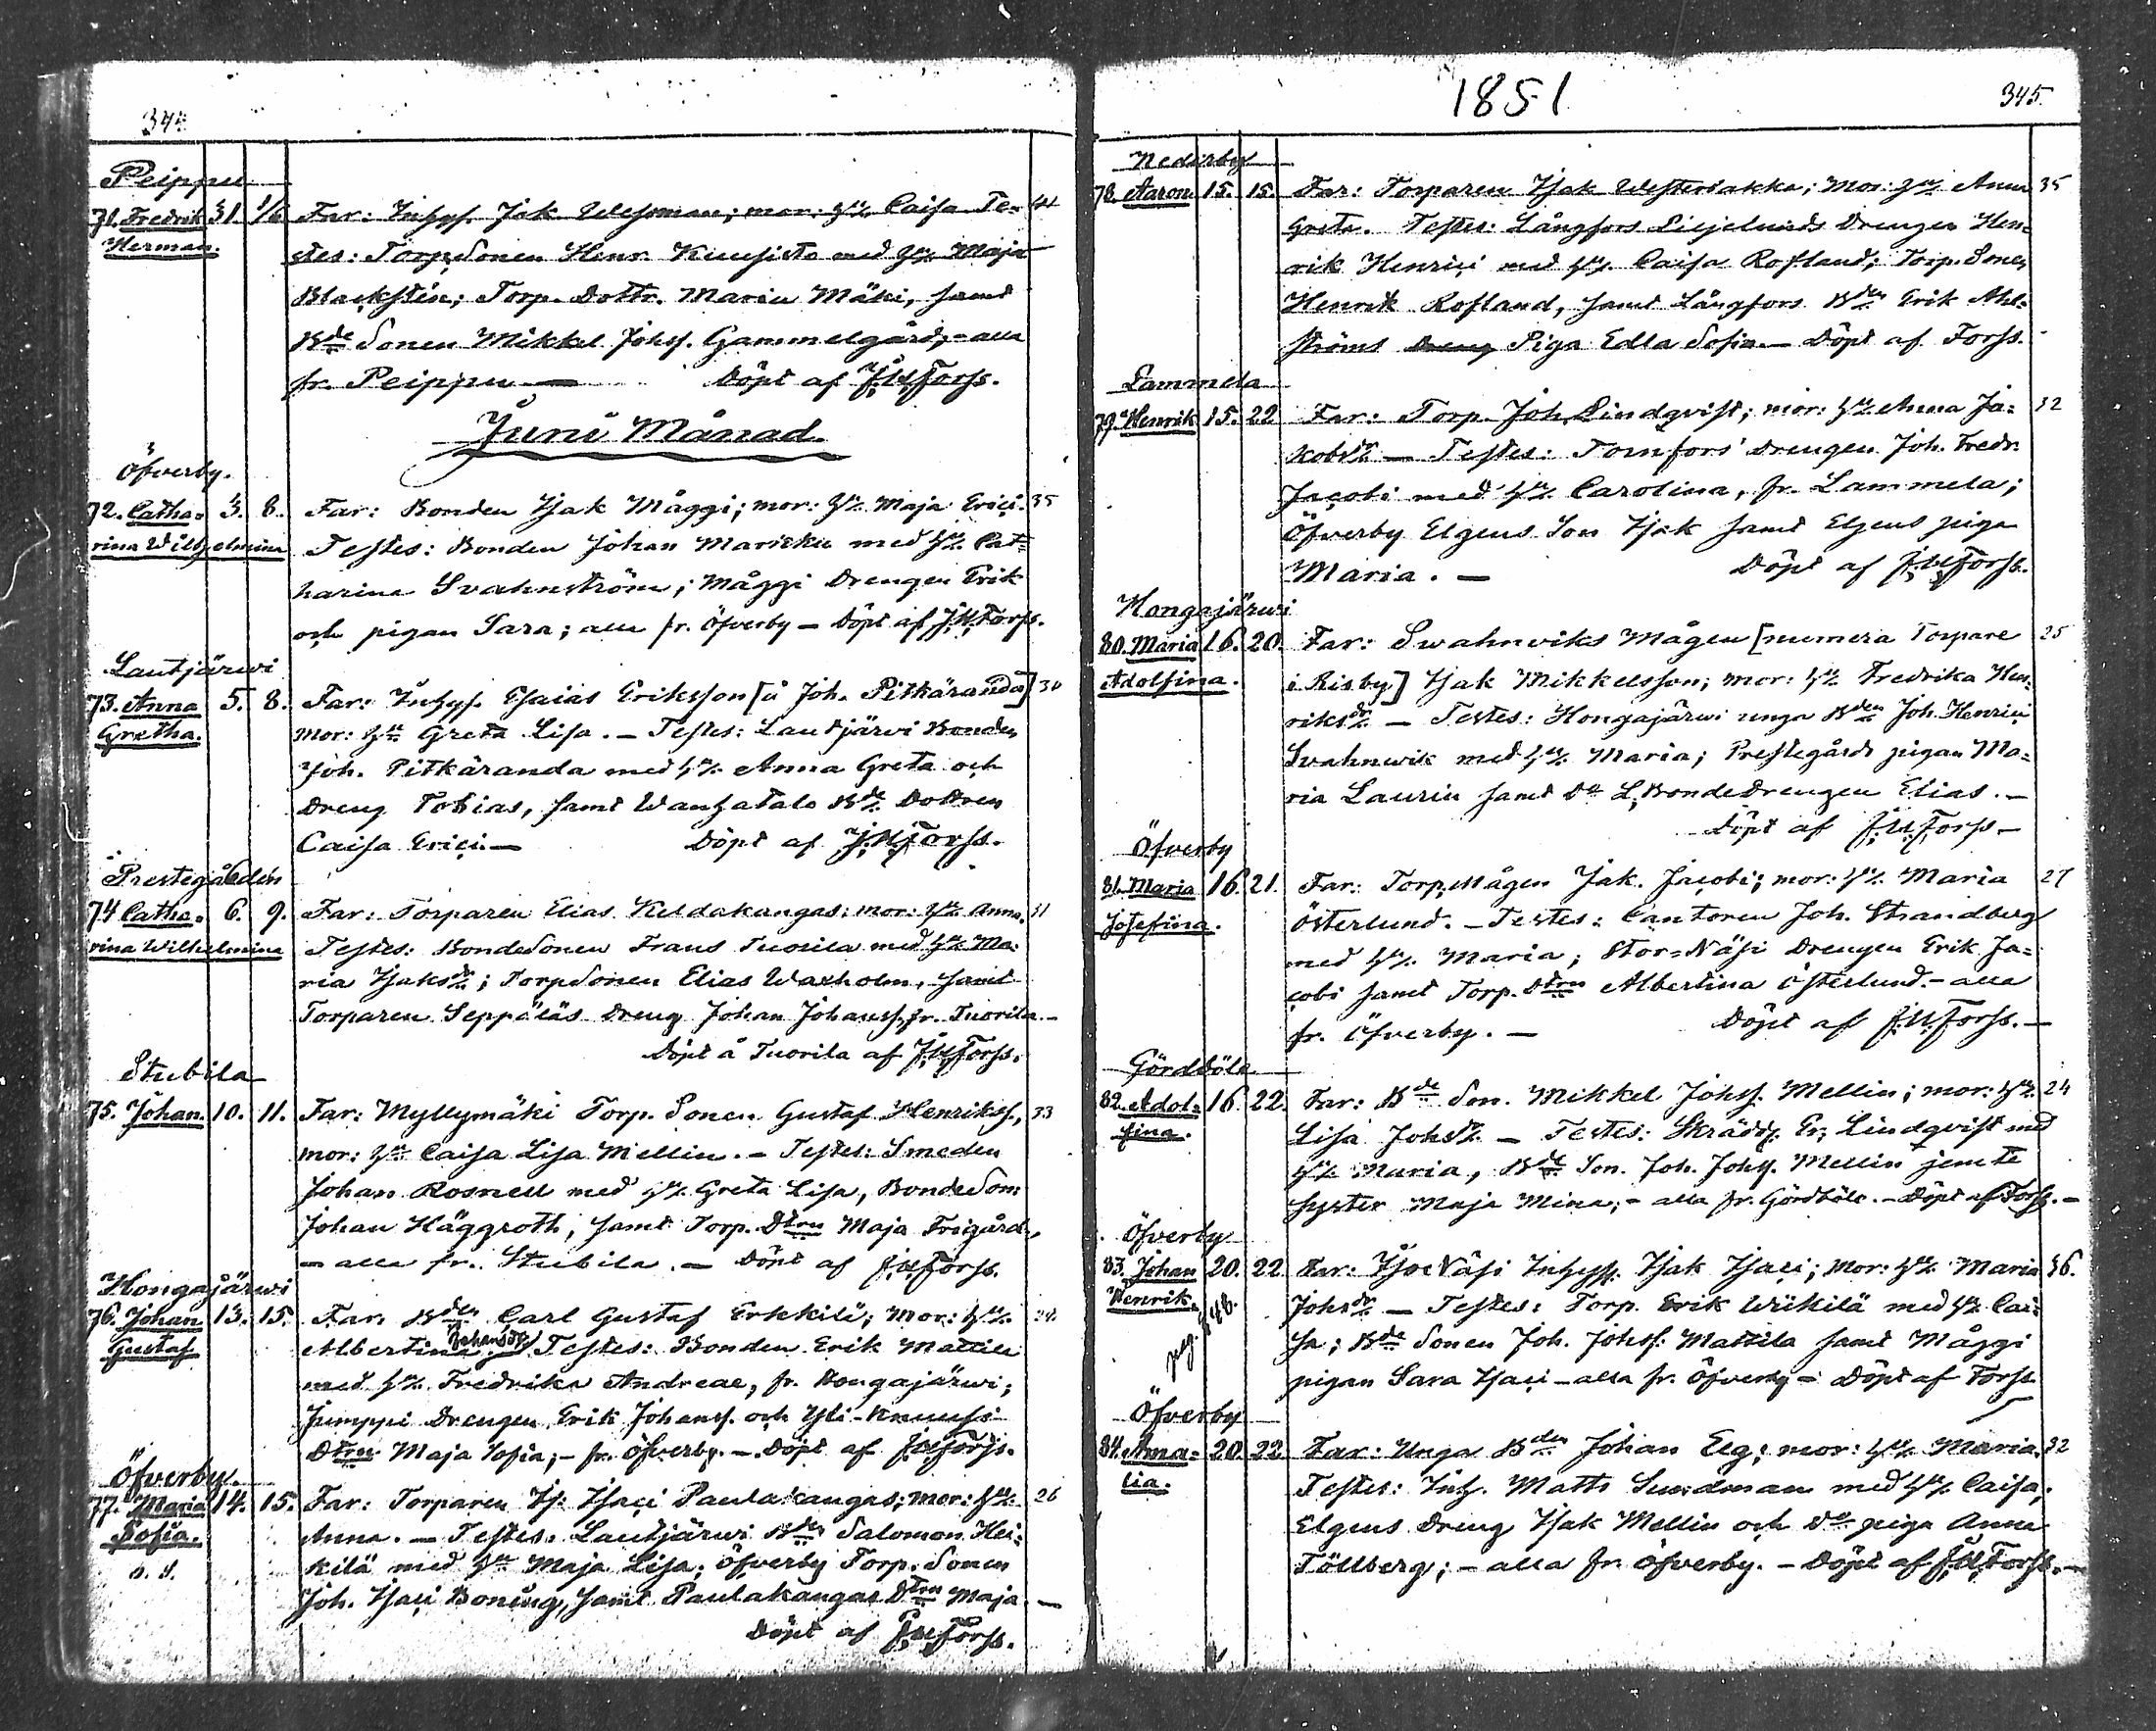 344.
Peippu
71. Fredrik 31. 1/6. Far: Inhys. Isak Wessman; mor: hu. Caisa Te= 44
Herman. stes: Torp. Sonen Henr. Kuusisto med hu. Maja
Blackstén; Torp. Dottr. Maria Mäki, samt
Bde Sonen Mikkel Johss. Gammelgård, - alla
fr. Peippu — Döpt af Forss.
Juni Månad.
Öfverby.
72. Catha= 3. 8. Far: Bonden Isak Måggi; mor: hu. Maja Erici. 35
rina Wilhelmina Testes: Bonden Johan Marieku med hu. Cat=
harina Svahnström; Måggi Drengen Erik
och pigan Sara; alla fr. Öfverby - Döpt af Forss.
Lautjärwi
73. Anna 5. 8. Far: Inhys. Esaias Eriksson [å Joh. Pitkäranda] 30
Gretha. mor: hu. Greta Lisa. - Testes: Lautjärvi Bonden
Joh. Pitkäranda med hu. Anna Greta och
Dreng Tobias, samt Wanhatalo Bde Dottren
Caisa Erici. — Döpt af Forss.
Prestegården
74 Catha= 6. 9. Far: Torparen Elias Keldakangas: mor: hu. Anna. 31
rina Wilhelmina Testes: BondeSonen Frans Tuorila med hu. Ma=
ria Isaksdr; TorpSonen Elias Waxholm, samt
Torparen Seppäläs Dreng Johan Johanss. fr. Tuorila. -
Döpt å Tuorila af Forss.
Stubila
75. Johan. 10. 11. Far: Myllymäki Torp. Sonen Gustaf Henrikss., 33
mor: hu. Caisa Lisa Mellin. - Testes: Smeden
Johan Rosnell med hu. Greta Lisa, BondeSon:
Johan Häggroth, samt Torp. Dtrn Maja Frigård,
- alla fr. Stubila. - Döpt af Forss.
Hongajärwi
76. Johan 13. 15. Far: Bden Carl Gustaf Erkkilä; Mor: hu.
Gustaf Albertina Johansdr Testes: Bonden Erik Mattila
med hu. Fredrika Andreae, fr. Hongajärwi;
Jumppi Drengen Erik Johanss. och Yli-Knuusi
Dtrn Maja Sofia; - fr. Öfverby. - Döpt af Forss.
Öfverby.
77. Maria 14. 15. Far: Torparen Is: Isaci Paulakangas; mor: hu. 26
Sofia. Anna. - Testes: Lautjärwi Bden Salomon Hei=
kilä med hu. Maja Lisa; Öfverby Torp. Sonen
Joh. Isaci Boning, samt Paulakangas Dtrn Maja. -
Döpt af Forss.
1851
345.
Nederby
78. Aaron 15. 15. Far: Torparen Isak Westersakka; Mor: hu. Anna 35
Greta. Testes: Långfors Liljelunds Drengen Hen=
rik Henrici med hu. Caisa Rosland; Torp. Sonen
Henrik Rosland, samt Långfors Bden Erik Ahl=
ströms Dreng Piga Edla Sofia. - Döpt af Forss.
Lammela
79. Henrik 15. 22 Far: Torp. Joh. Lindqvist; mor: hu. Anna Ja= 32
kobsdr — Testes: Tomfors' Drengen Joh. Fredr.
Jacobi med hu. Carolina, fr. Lammela;
Öfverby Elgens Son Isak samt Elgens piga
Maria. — Döpt af Forss.
Hongajärwi
80. Maria 16. 20. Far: Swahnviks Mågen [numera Torpare 25
Adolfina. i Risby] Isak Mikkelsson; mor: hu. Fredrika Hen=
riksdr - Testes: Hongajärwi unga Bden Joh. Henrici
Svahnwik med hu. Maria; Prestegårds pigan Ma=
ria Laurin samt Do L. BondeDrengen Elias. -
Döpt af Forss -
Öfverby
81. Maria 16. 21. Far: Torp. Mågen Jak. Jacobi; mor: hu. Maria 27
Josefina. Österlund. - Testes: Cantoren Joh. Strandberg
med hu. Maria; Stor=Näsi Drengen Erik Ja=
cobi samt Torp. Dtrn Albertina Österlund. - alla
fr. Öfverby. — Döpt af Forss. —
Gördböle
82. Adol= 16. 22. Far: Bde Son. Mikkel Johss. Mellin; mor: hu. 24
fina. Lisa Johsdr. - Testes: Skrädd. Er. Lindqvist med
hu. Maria, Bde Son. Joh. Johss. Mellin jemte
syster Maja Mina; - alla fr. Gördböle. - Döpt af Forss. -
Öfverby
83. Johan 20. 22 Far: Iso Näsi Inhys. Isak Isaci; mor: hu. Maria 36.
Henrik. Johsdr - Testes: Torp. Erik Wiikilä med hu. Cai=
sa; Bde Sonen Joh. Johss. Mattila samt Måggi
pigan Sara Isaci - alla fr. Öfverby - Döpt af Forss
Öfverby
84. Ama= 20. 22. Far: Unga Bden Johan Elg; mor: hu. Maria. 32
lia. Testes: Inh. Matts Sundman med hu. Caisa,
Elgens Dreng Isak Mellin och Do piga Anna
Töllberg; - alla fr. Öfverby. - Döpt af Forss. -